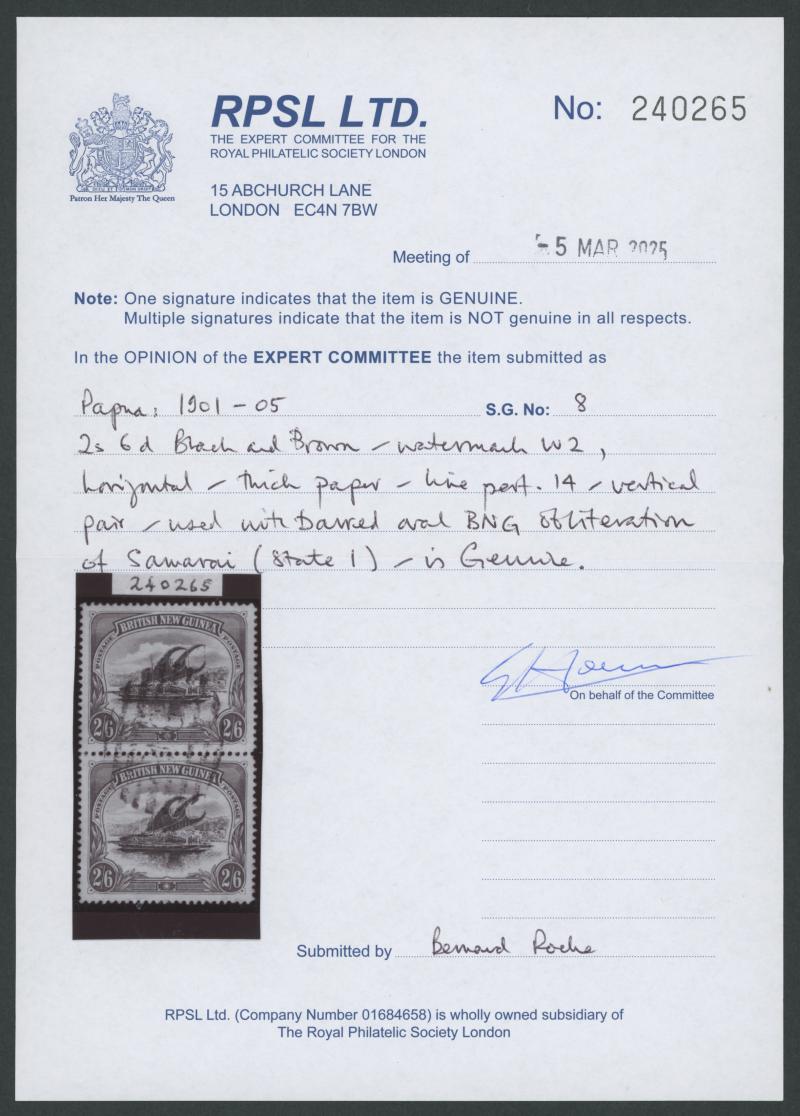 RPSL LTD.
THE EXPERT COMMITTEE FOR THE
ROYAL PHILATELIC SOCIETY LONDON
15 ABCHURCH LANE
LONDON EC4N 7BW
No: 240265
Patron Her Majesty The Queen
Meeting of -5 MAR 2025
Note: One signature indicates that the item is GENUINE.
Multiple signatures indicate that the item is NOT genuine in all respects.
In the OPINION of the EXPERT COMMITTEE the item submitted as
Papua: 1901-05 S.G. No: 8
2s 6d Black and Brown - watermark W2,
horizontal - thick paper - line perf. 14 - vertical
pair - used with Barred oval BNG obliteration
of Samarai (State 1) - is Genuine.
240265
BRITISH NEW GUINEA
POSTAGE POSTAGE
2/6 2/6
BRITISH NEW GUINEA
POSTAGE POSTAGE
2/6 2/6
On behalf of the Committee
Submitted by Bernard Roche
RPSL Ltd. (Company Number 01684658) is wholly owned subsidiary of
The Royal Philatelic Society London